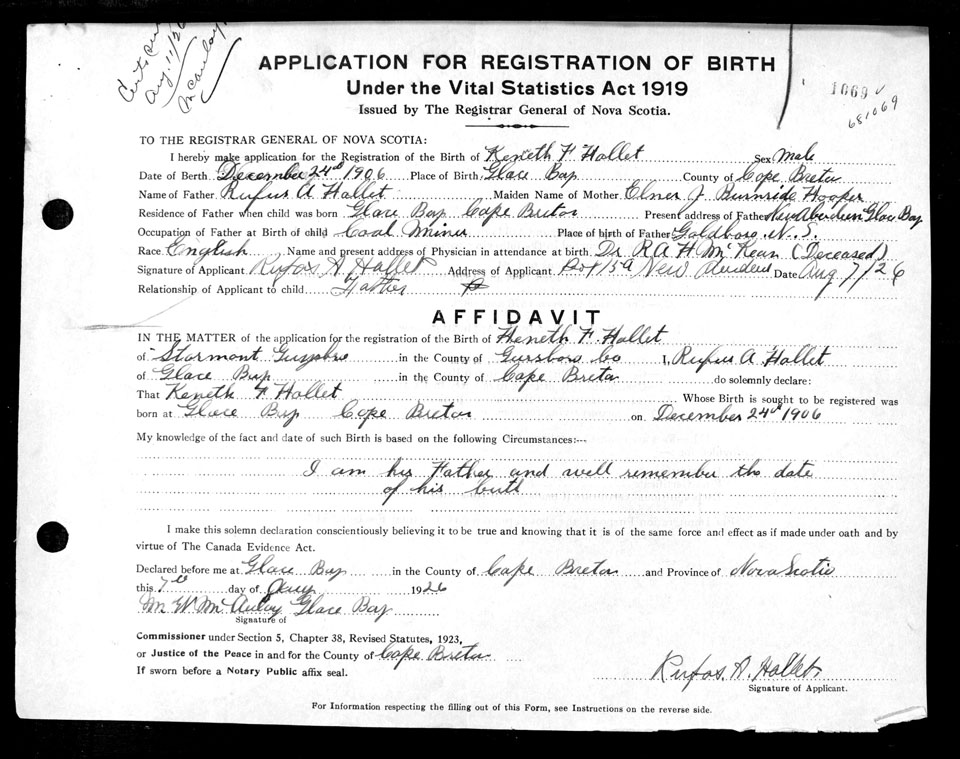 Cert Sent
Aug. 11/26
McAuley
APPLICATION FOR REGISTRATION OF BIRTH
Under the Vital Statistics Act 1919
Issued by The Registrar General of Nova Scotia.
1069
681069
TO THE REGISTRAR GENERAL OF NOVA SCOTIA:
I hereby make application for the Registration of the Birth of Keneth F Hallet Sex Male
Date of Birth December 24th 1906 Place of Birth Glace Bay County of Cape Breton
Name of Father Rufus A Hallet Maiden Name of Mother J Burnside Hooper
Residence of Father when child was born Glace Bay Cape Breton Present address of Father New Aberdeen Glace Bay
Occupation of Father at Birth of child Coal Miner Place of birth of Father Goldboro N. S.
Race English Name and present address of Physician in attendance at birth Dr R A H McKean (Deceased)
Signature of Applicant Rufas A Hallet Address of Applicant Box 159 New Date Aug 7/26
Relationship of Applicant to child Father
AFFIDAVIT
IN THE MATTER of the application for the registration of the Birth of Keneth F. Hallet
of Stormont in the County of Co I, Rufus A Hallet
of Glace Bay in the County of Cape Breton do solemnly declare:
That Keneth F Hallet Whose Birth is sought to be registered was
born at Glace Bay Cape Breton on December 24th 1906
My knowledge of the fact and date of such Birth is based on the following Circumstances:--
I am his Father and well remember the date
of his birth
I make this solemn declaration conscientiously believing it to be true and knowing that it is of the same force and effect as if made under oath and by
virtue of The Canada Evidence Act.
Declared before me at Glace Bay in the County of Cape Breton and Province of Nova Scotia
this 7th day of Aug 1926
M W McAuley Glace Bay
Signature of
Commissioner under Section 5, Chapter 38, Revised Statutes, 1923,
or Justice of the Peace in and for the County of Cape Breton
If sworn before a Notary Public affix seal.
Rufas. A. Hallet
Signature of Applicant.
For Information respecting the filling out of this Form, see Instructions on the reverse side.